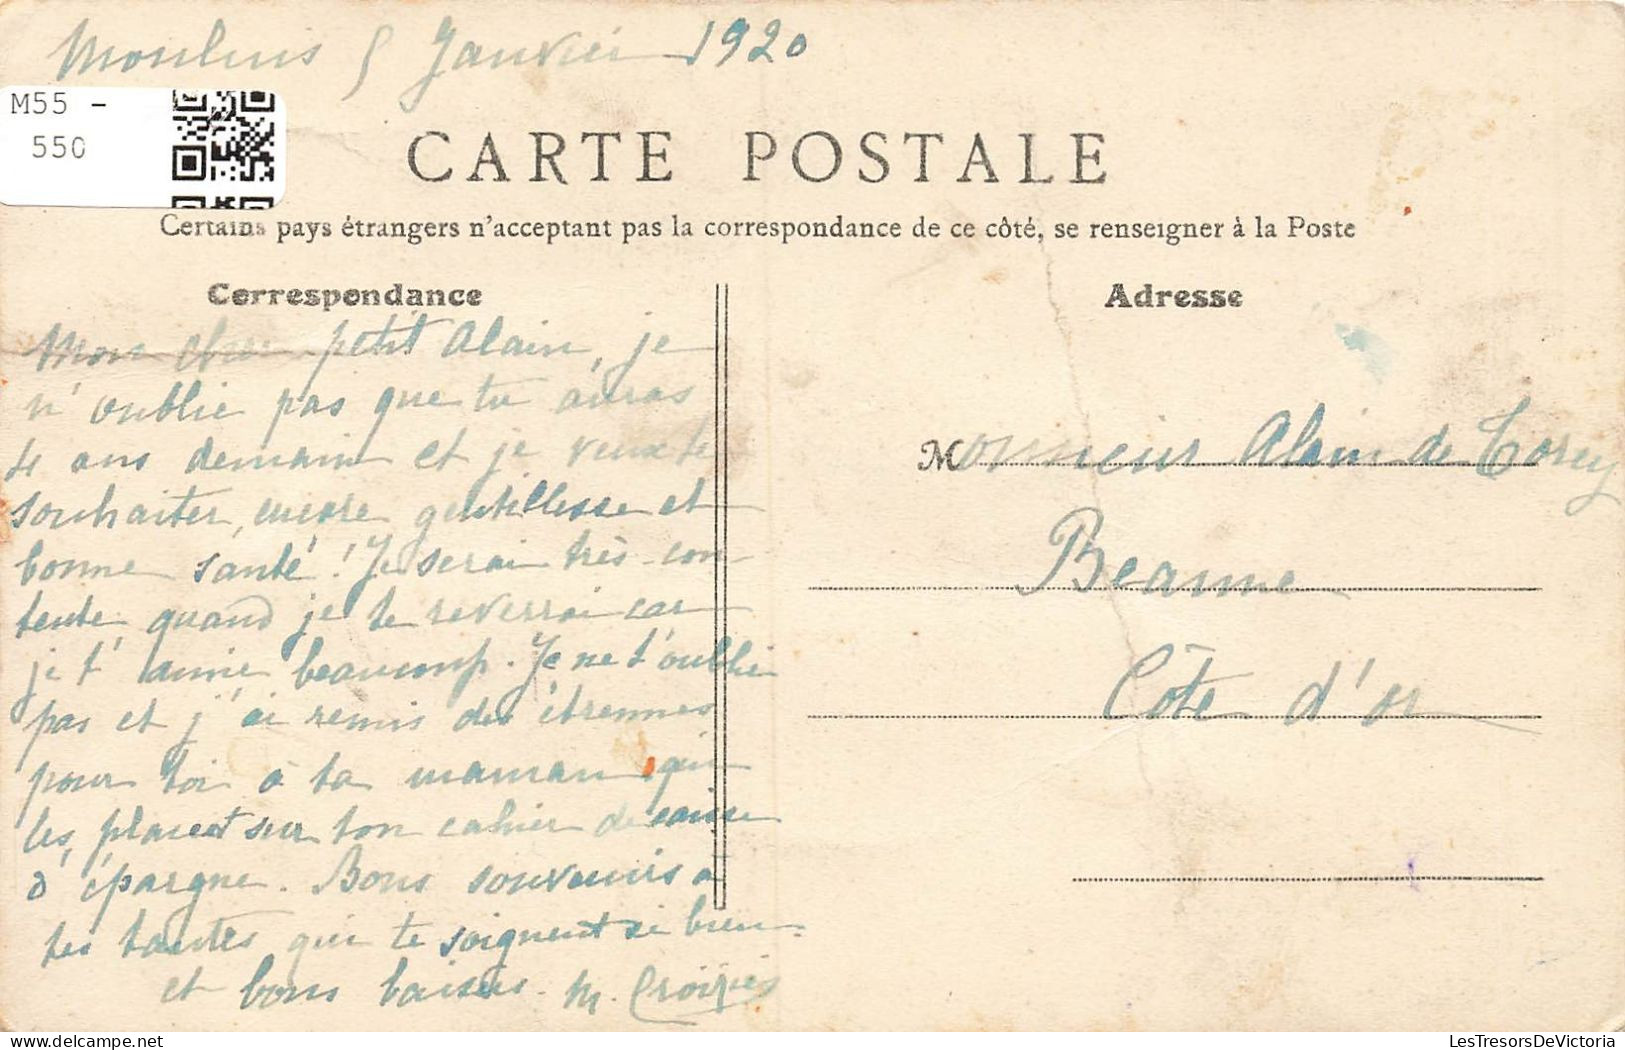 Moulins 5 Janvier 1920
M55 -
550
CARTE POSTALE
Certains pays étrangers n'acceptant pas la correspondance de ce côté, se renseigner à la Poste
Correspondance
Mon cher petit Alain, je
n'oublie pas que tu auras
4 ans demain et je veux te
souhaiter, encore gentillesse et
bonne santé ! Je serai très con
tente quand je te reverrai car
je t'aime beaucoup. Je ne t'oublie
pas et j'ai remis des étrennes
pour toi à ta maman qui
les placent sur ton cahier de caisse
d'épargne. Bons souvenirs à
tes tantes qui te soignent si bien
et bons baisers. M.
Adresse
Monsieur Alain de Torcy
Beaune
Côte d'or
LesTresorsDeVictoria